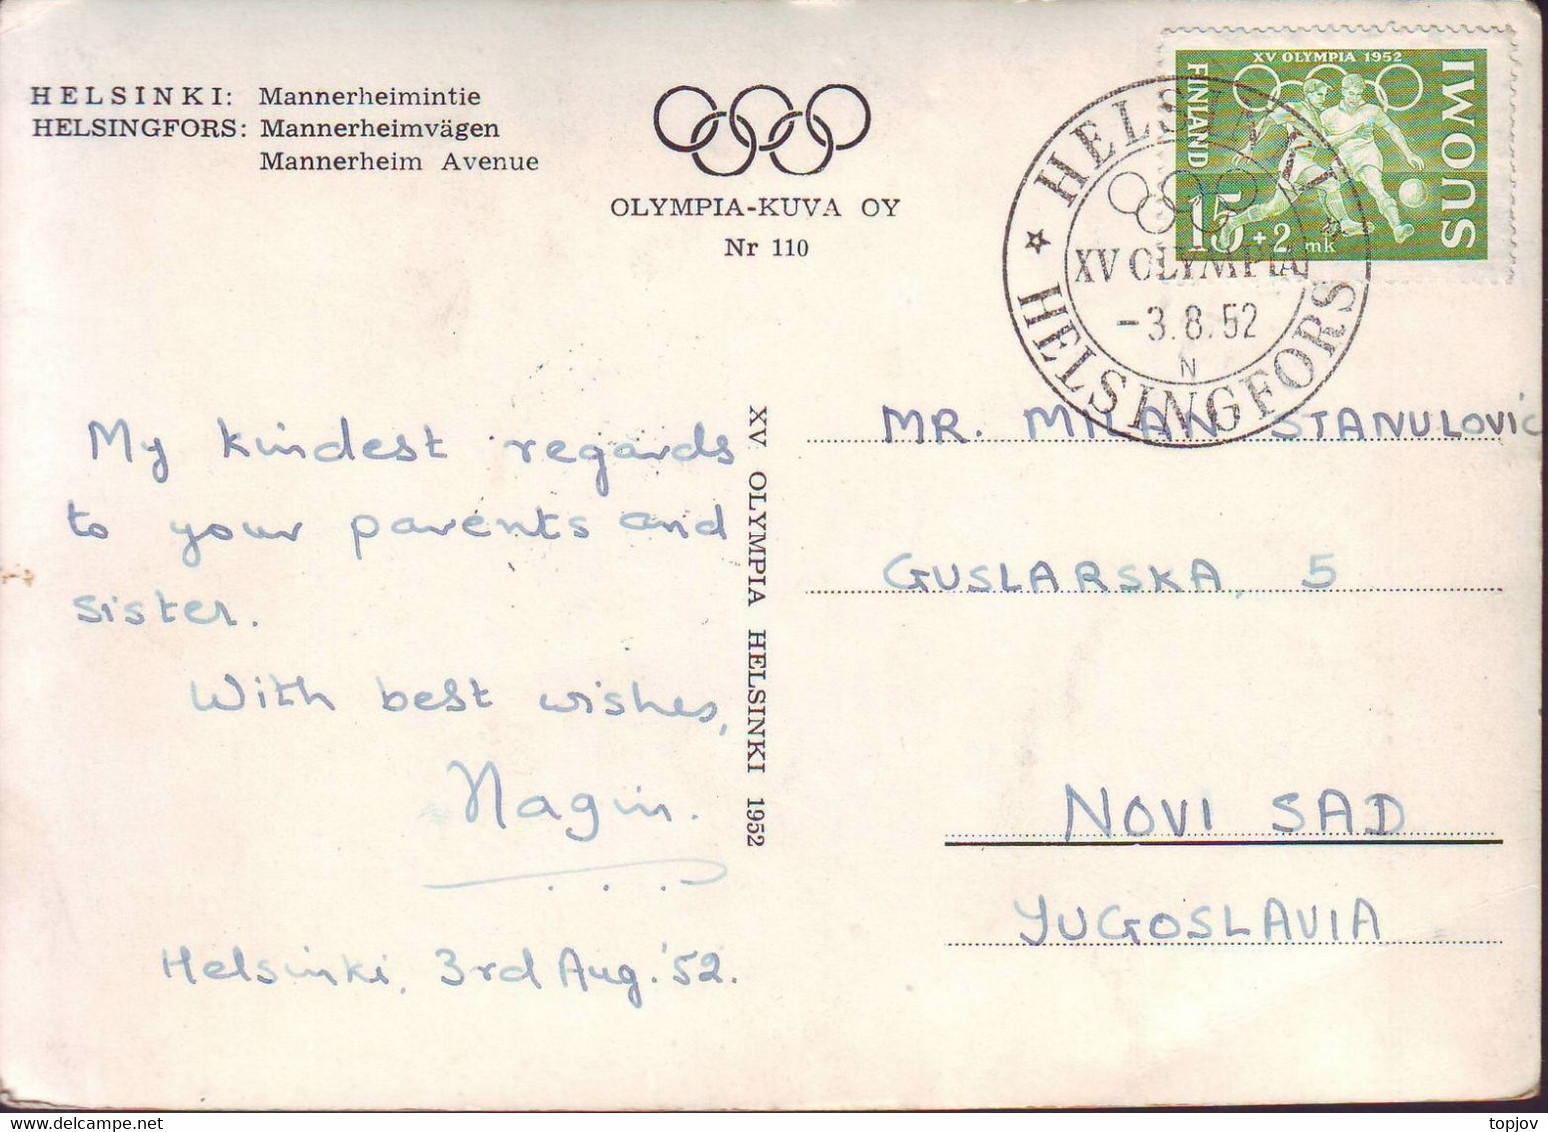 HELSINKI: Mannerheimintie
HELSINGFORS: Mannerheimvägen
Mannerheim Avenue
OLYMPIA-KUVA OY
Nr 110
XV OLYMPIA 1952
FINLAND
SUOMI
15 + 2 mk
HELSINKI
XV OLYMPIA
-3.8.52
N
HELSINGFORS
My kindest regards
to your parents and
sister.
With best wishes,
Nagin.
Helsinki, 3rd Aug. '52.
XV OLYMPIA HELSINKI 1952
MR. MILAN STANULOVIC
GUSLARSKA, 5
NOVI SAD
YUGOSLAVIA
topjov